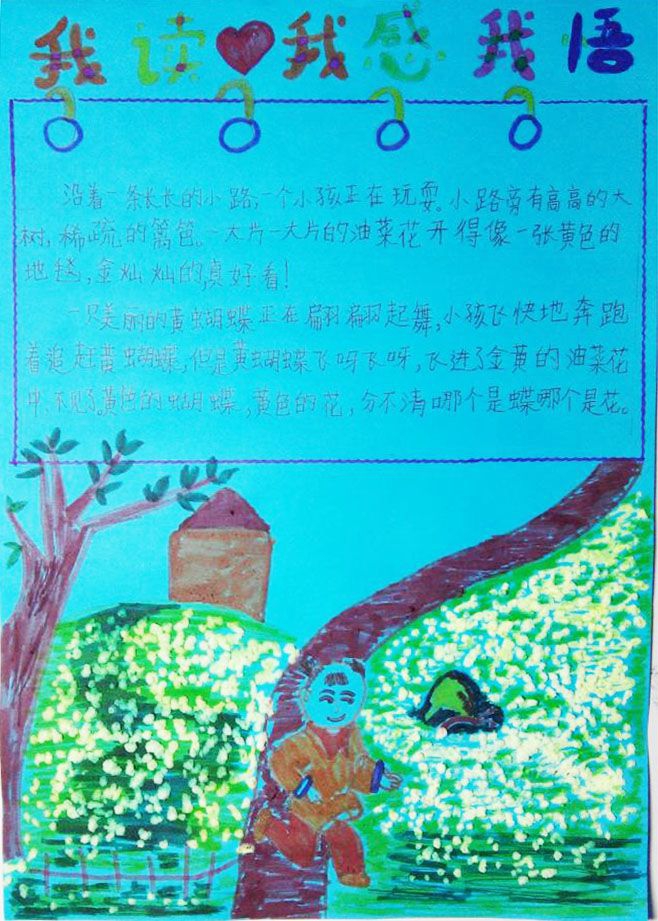 我读我感我悟
沿着一条长长的小路,一个小孩正在玩耍。小路旁有高高的大
树,稀疏的篱笆。一大片一大片的油菜花开得像一张黄色的
地毯,金灿灿的,真好看!
一只美丽的黄蝴蝶正在翩翩起舞,小孩飞快地奔跑
着追赶黄蝴蝶,但是黄蝴蝶飞呀飞呀,飞进了金黄的油菜花
中,不见了。黄色的蝴蝶,黄色的花,分不清哪个是蝶哪个是花。